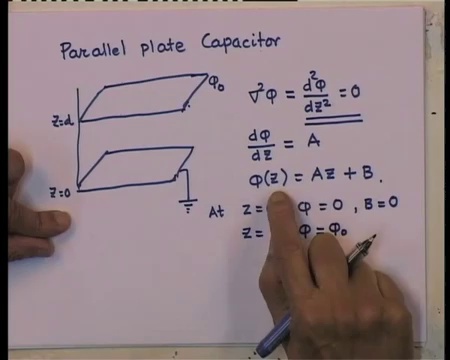 Parallel plate Capacitor
φ₀
z=d
z=0
∇²φ = d²φ/dz² = 0
dφ/dz = A
φ(z) = Az + B.
At z= φ = 0, B=0
z= φ = φ₀